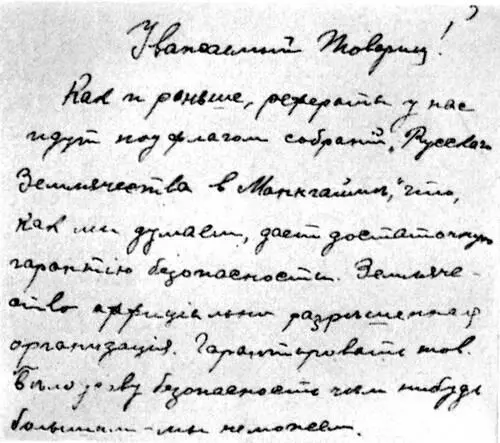 Уважаемый Товарищ!
Как и раньше, рефераты у нас
идут под флагом собраній „Русскаго
Землячества в Маннгайме," что,
как мы думаем, дает достаточную
гарантію безопасности. Земляче-
ство оффиціально разрешенная
организація. Гарантировать тов.
безопасность чем нибудь
большим – мы не можем.